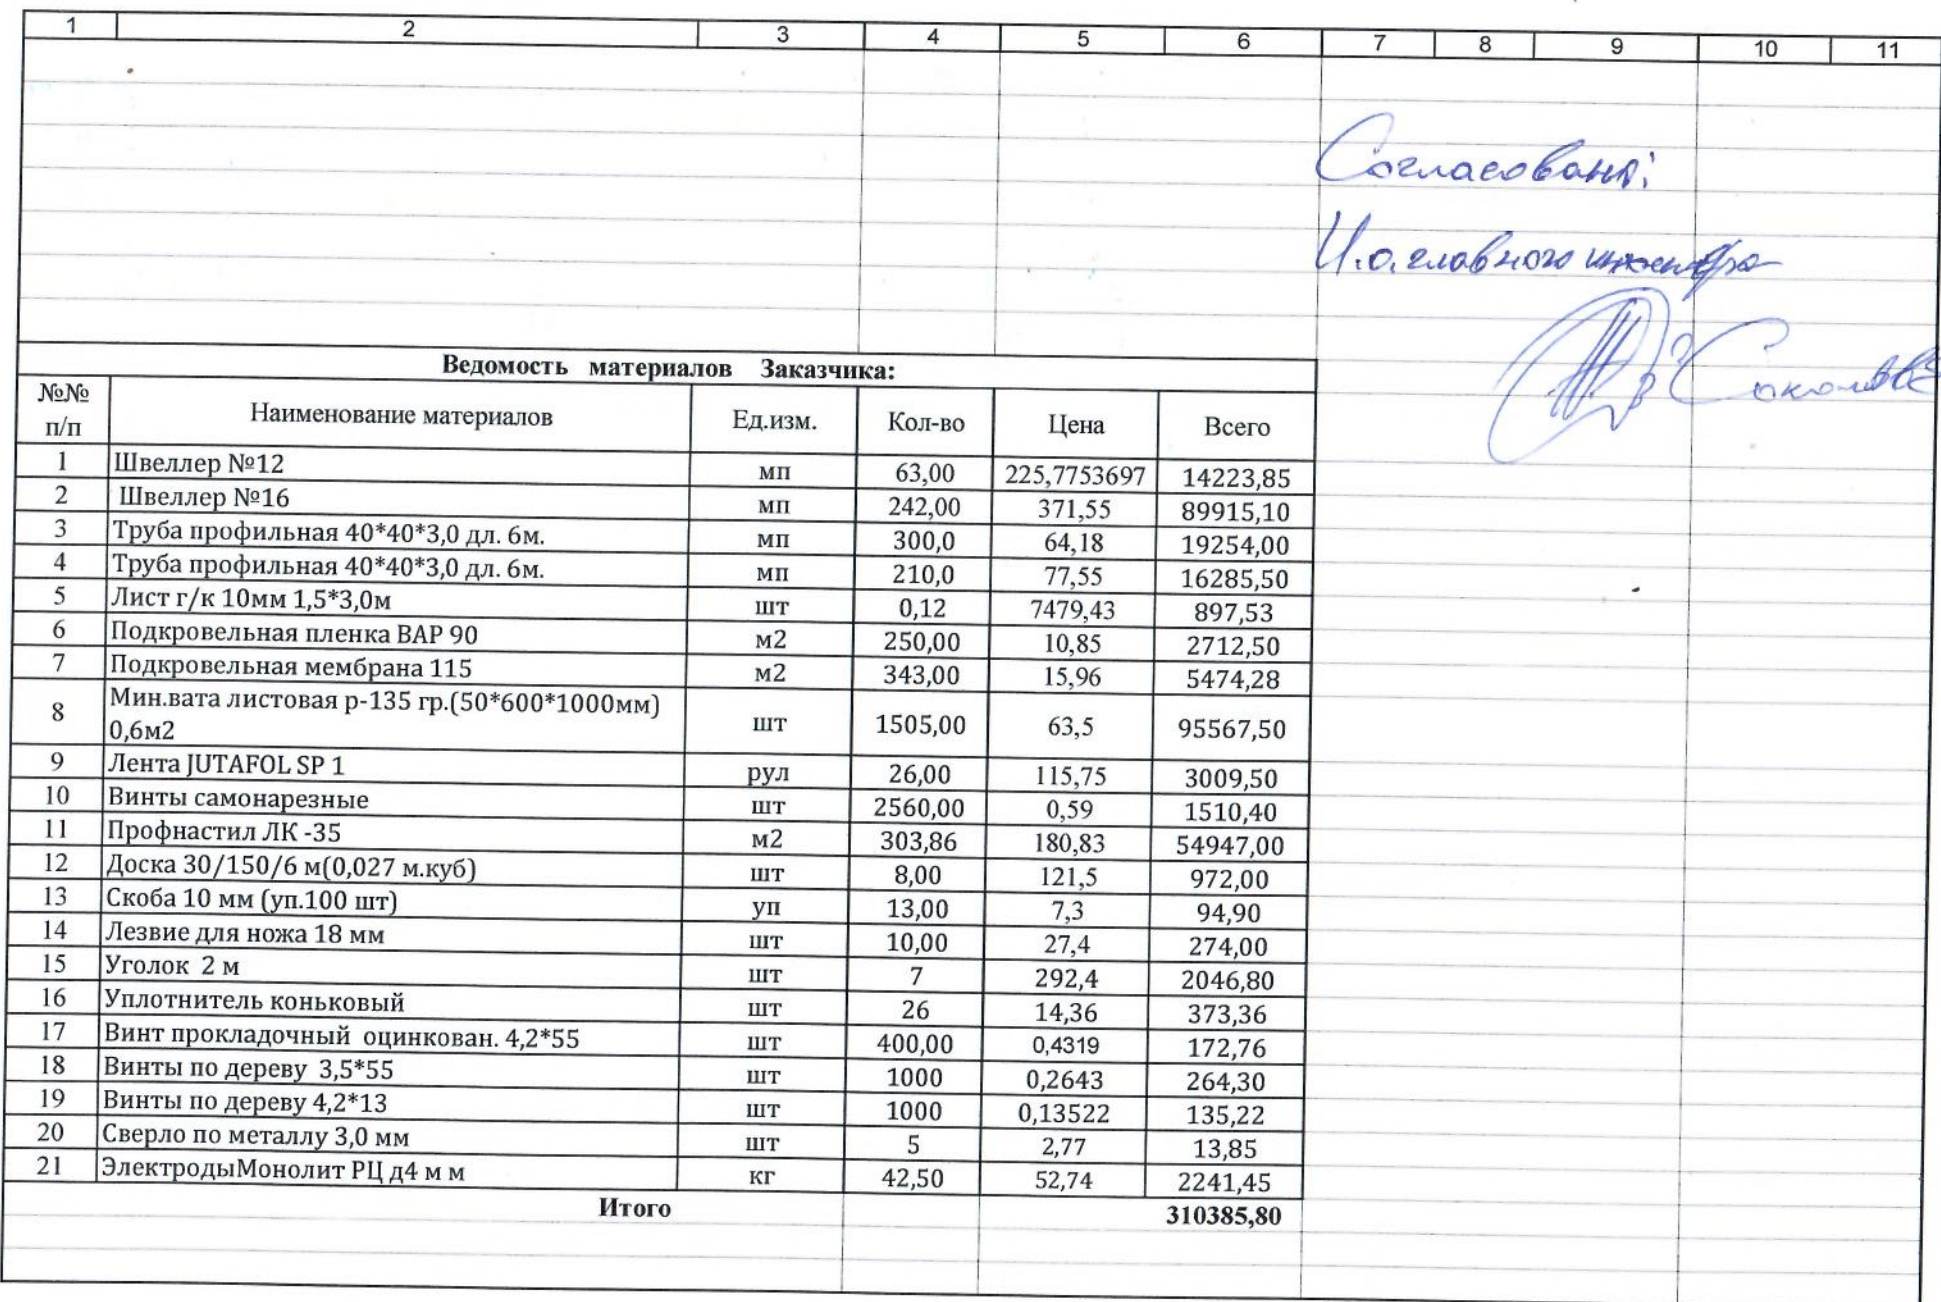 1 2 3 4 5 6 7 8 9 10 11
Согласовано:
И.о. главного инженера
Соколов
Ведомость материалов Заказчика:
№№ п/п Наименование материалов Ед.изм. Кол-во Цена Всего
1 Швеллер №12 мп 63,00 225,7753697 14223,85
2 Швеллер №16 мп 242,00 371,55 89915,10
3 Труба профильная 40*40*3,0 дл. 6м. мп 300,0 64,18 19254,00
4 Труба профильная 40*40*3,0 дл. 6м. мп 210,0 77,55 16285,50
5 Лист г/к 10мм 1,5*3,0м шт 0,12 7479,43 897,53
6 Подкровельная пленка ВАР 90 м2 250,00 10,85 2712,50
7 Подкровельная мембрана 115 м2 343,00 15,96 5474,28
8 Мин.вата листовая р-135 гр.(50*600*1000мм) 0,6м2 шт 1505,00 63,5 95567,50
9 Лента JUTAFOL SP 1 рул 26,00 115,75 3009,50
10 Винты самонарезные шт 2560,00 0,59 1510,40
11 Профнастил ЛК -35 м2 303,86 180,83 54947,00
12 Доска 30/150/6 м(0,027 м.куб) шт 8,00 121,5 972,00
13 Скоба 10 мм (уп.100 шт) уп 13,00 7,3 94,90
14 Лезвие для ножа 18 мм шт 10,00 27,4 274,00
15 Уголок 2 м шт 7 292,4 2046,80
16 Уплотнитель коньковый шт 26 14,36 373,36
17 Винт прокладочный оцинкован. 4,2*55 шт 400,00 0,4319 172,76
18 Винты по дереву 3,5*55 шт 1000 0,2643 264,30
19 Винты по дереву 4,2*13 шт 1000 0,13522 135,22
20 Сверло по металлу 3,0 мм шт 5 2,77 13,85
21 ЭлектродыМонолит РЦ д4 м м кг 42,50 52,74 2241,45
Итого 310385,80